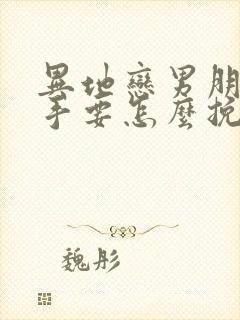 異地戀男朋
手要怎麼挽
魏彤